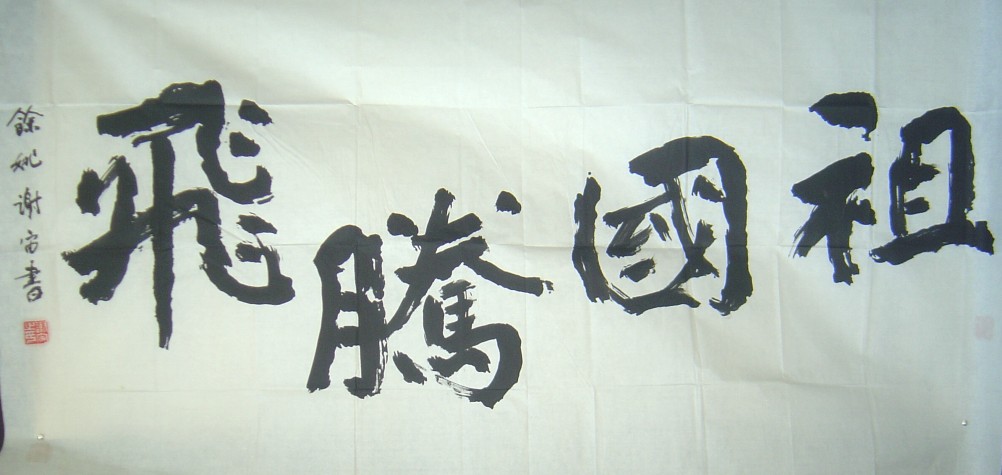 祖國騰飛
餘姚謝宙書